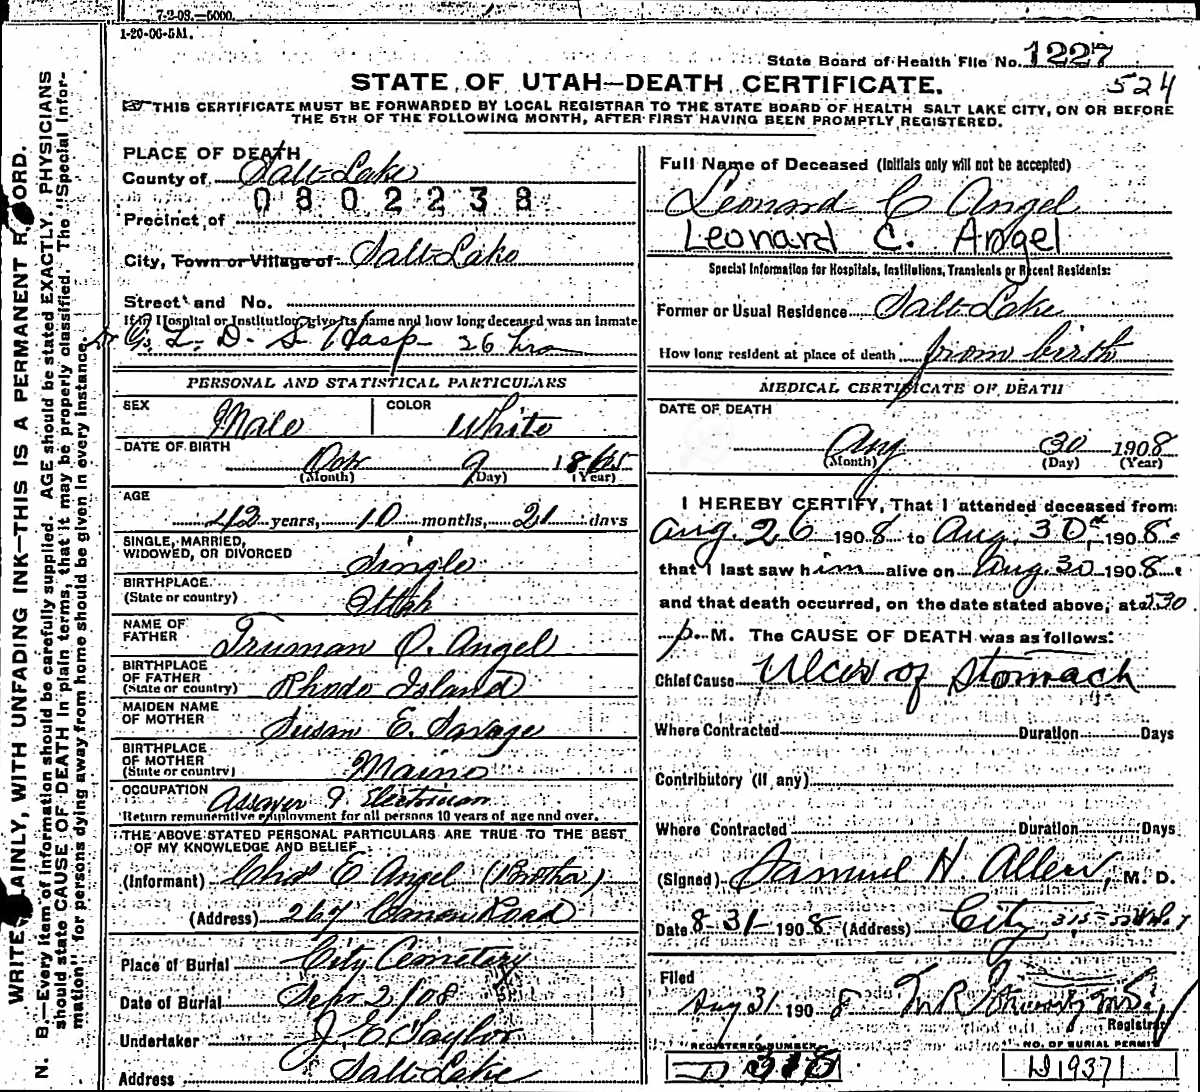 7-2-08.—5000.
1-20-06-5M.
State Board of Health File No. 1227
STATE OF UTAH—DEATH CERTIFICATE.
524
THIS CERTIFICATE MUST BE FORWARDED BY LOCAL REGISTRAR TO THE STATE BOARD OF HEALTH SALT LAKE CITY, ON OR BEFORE
THE 5TH OF THE FOLLOWING MONTH, AFTER FIRST HAVING BEEN PROMPTLY REGISTERED.
WRITE PLAINLY, WITH UNFADING INK—THIS IS A PERMANENT RECORD.
N. B.—Every item of information should be carefully supplied. AGE should be stated EXACTLY. PHYSICIANS
should state CAUSE OF DEATH in plain terms, that it may be properly classified. The "Special Infor-
mation" for persons dying away from home should be given in every instance.
PLACE OF DEATH
County of Salt Lake
0802238
Precinct of
City, Town or Village of Salt Lake
Street and No.
If in Hospital or Institution, give its name and how long deceased was an inmate
L. D. S. Hosp 26 hrs
PERSONAL AND STATISTICAL PARTICULARS
SEX Male
COLOR White
DATE OF BIRTH
Oct 9 1865
(Month) (Day) (Year)
AGE
42 years, 10 months, 21 days
SINGLE, MARRIED,
WIDOWED, OR DIVORCED Single
BIRTHPLACE
(State or country) Utah
NAME OF
FATHER Truman O. Angel
BIRTHPLACE
OF FATHER
(State or country) Rhode Island
MAIDEN NAME
OF MOTHER Susan E. Savage
BIRTHPLACE
OF MOTHER
(State or country) Maine
OCCUPATION Assayer & Electrician
Return remunerative employment for all persons 10 years of age and over.
THE ABOVE STATED PERSONAL PARTICULARS ARE TRUE TO THE BEST
OF MY KNOWLEDGE AND BELIEF
(Informant) Chas E Angel (Brother)
(Address) Road
Place of Burial City Cemetery
Date of Burial Sept 2/08
Undertaker J. E Taylor
Address Salt Lake
Full Name of Deceased (Initials only will not be accepted)
Leonard C Angel
Leonard C. Angel
Special Information for Hospitals, Institutions, Transients or Recent Residents:
Former or Usual Residence Salt Lake
How long resident at place of death from birth
MEDICAL CERTIFICATE OF DEATH
DATE OF DEATH
Aug 30 1908
(Month) (Day) (Year)
I HEREBY CERTIFY, That I attended deceased from
Aug. 26 1908 to Aug. 30 1908
that I last saw him alive on Aug. 30 1908
and that death occurred, on the date stated above, at 230
p. M. The CAUSE OF DEATH was as follows:
Chief Cause Ulcer of Stomach
Where Contracted Duration Days
Contributory (if any)
Where Contracted Duration Days
(Signed) Samuel H. Allen, M. D.
Date 8-31-1908 (Address) City
Filed
Aug 31 1908
Registrar
REGISTERED NUMBER
D 318
NO. OF BURIAL PERMIT
D 19371